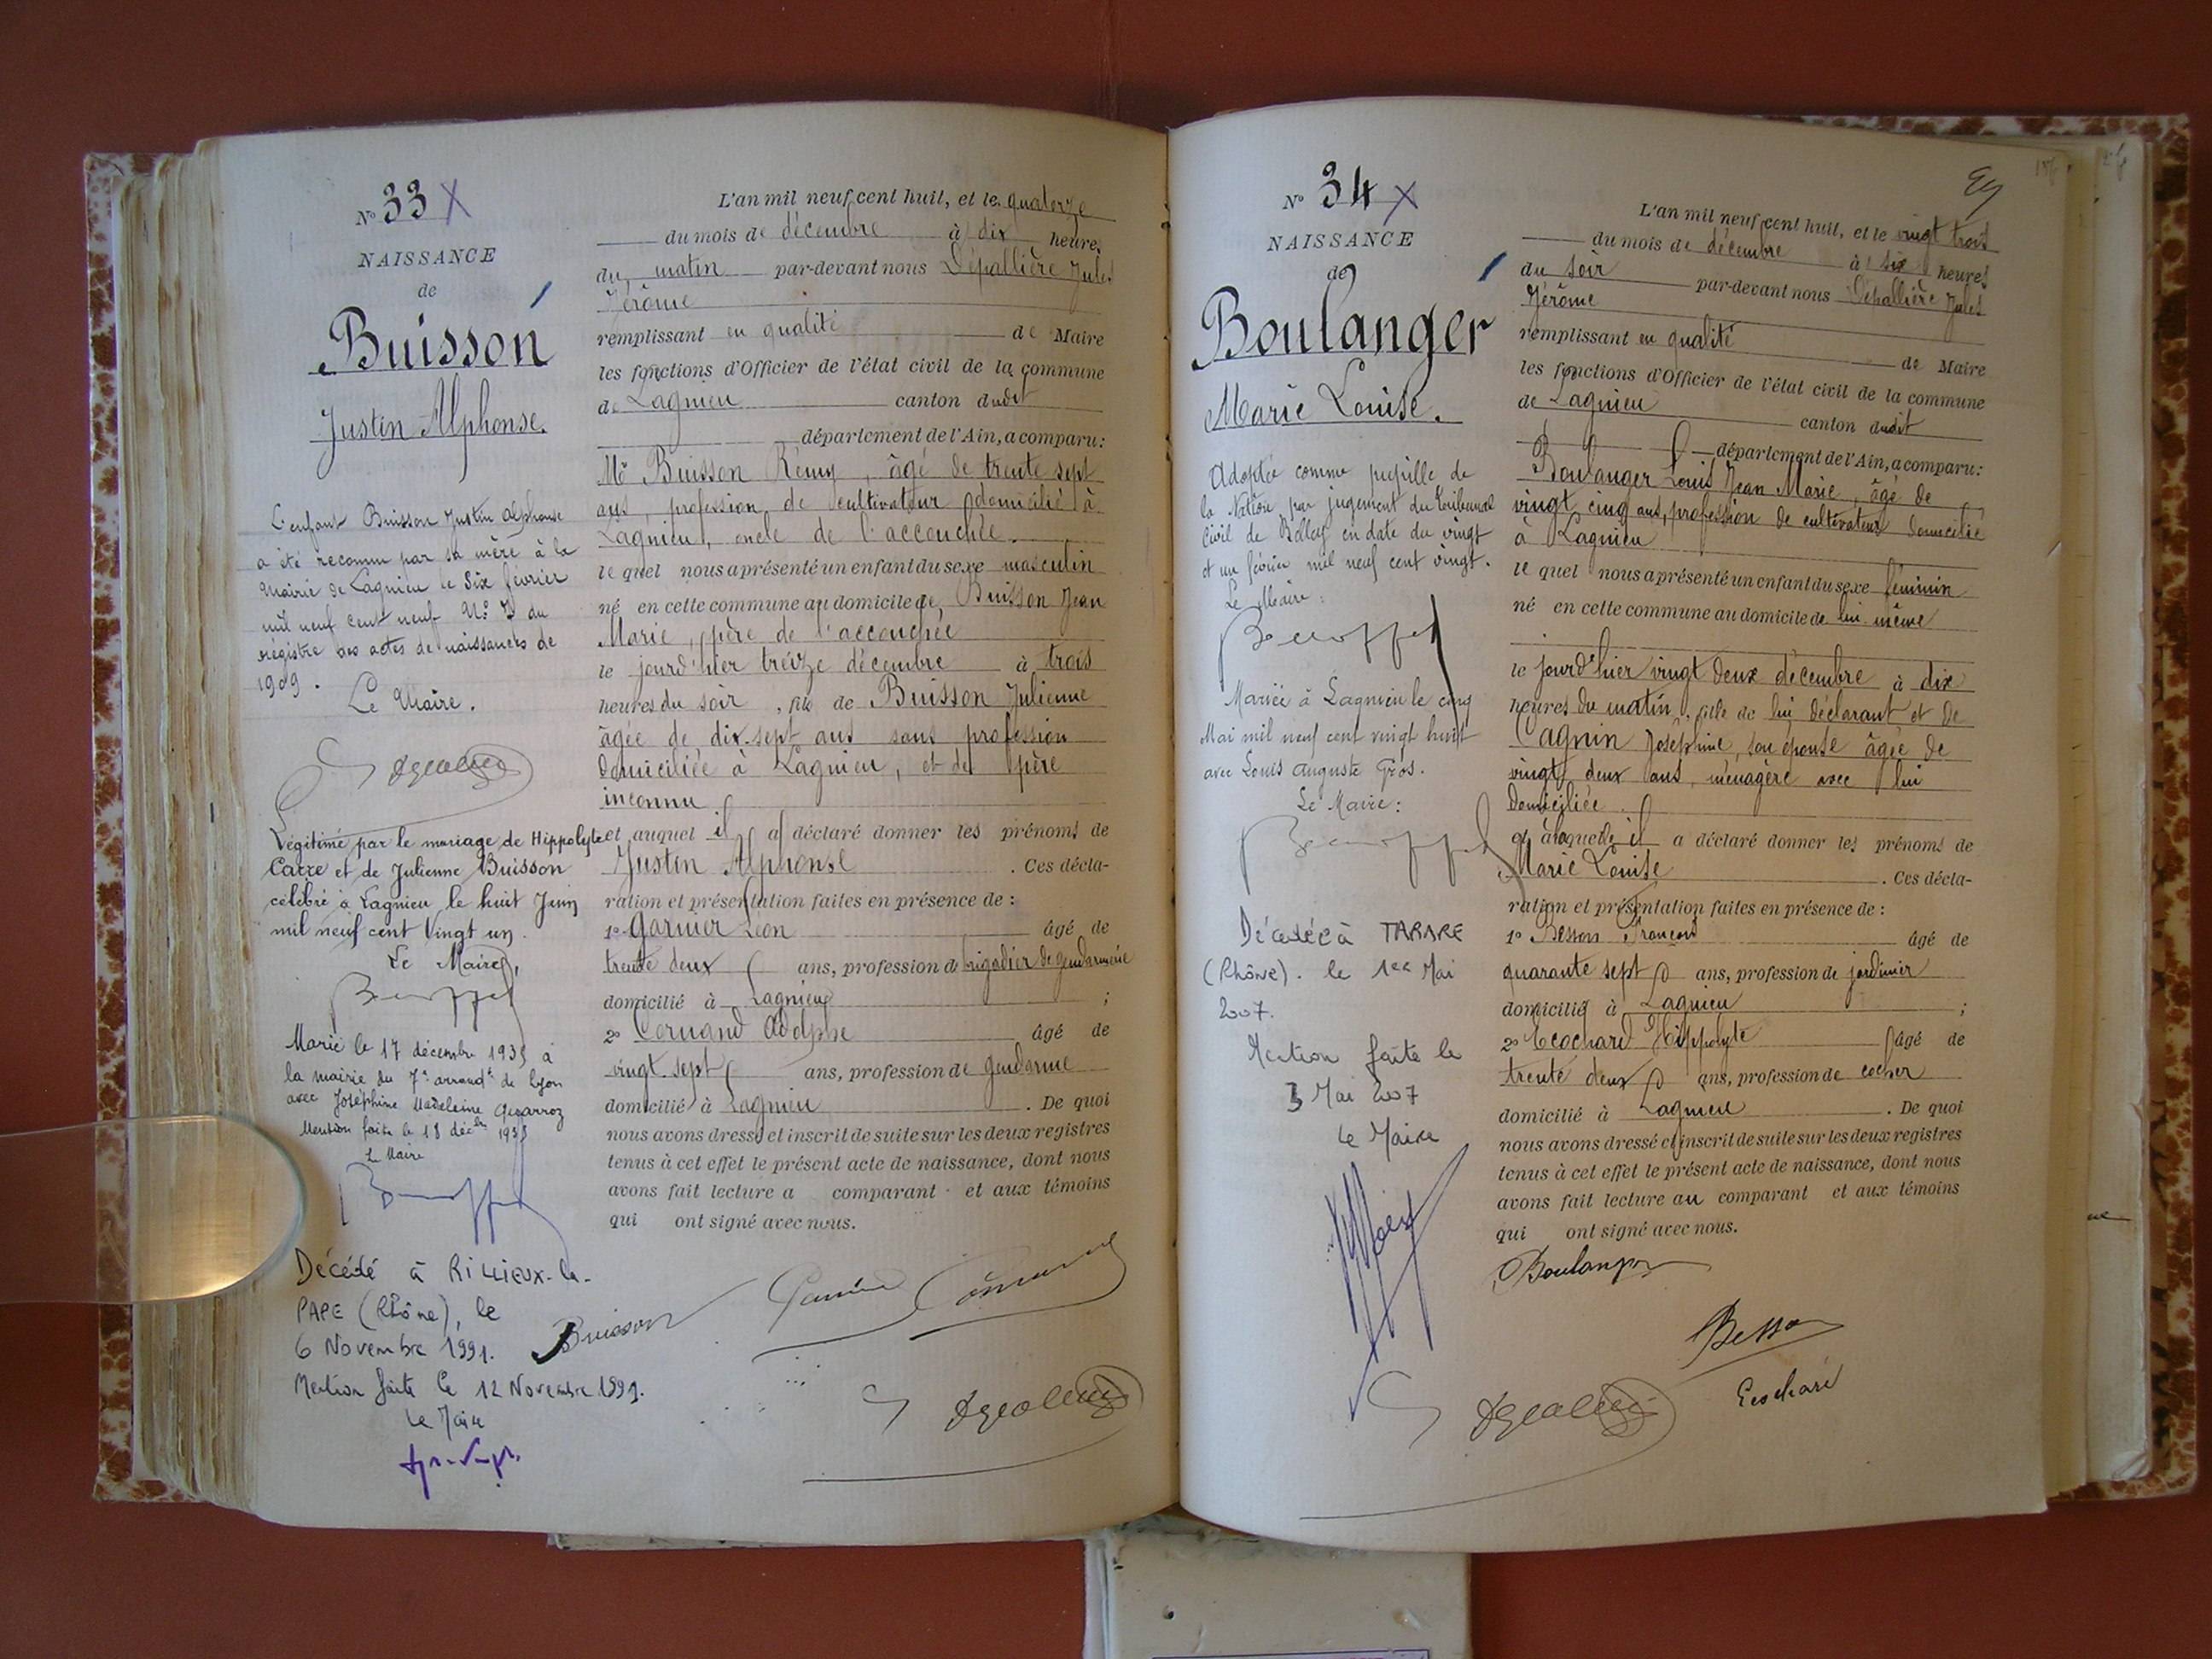 N° 33 X
NAISSANCE
de
Buisson
Justin Alphonse.
L'enfant Buisson Justin Alphonse
a été reconnu par sa mère à la
Mairie de Lagnieu le Six février
mil neuf cent neuf N°. du
régistre des actes de naissances de
1909.
Le Maire.
Légitimé par le mariage de Hippolyte
Carre et de Julienne Buisson
célébré à Lagnieu le huit Juin
mil neuf cent Vingt un.
Le Maire,
Marié le 17 décembre 1935 à
la mairie du 7e arrondt de Lyon
avec Joséphine Madeleine
Mention faite le 18 décbre 1935
Le Maire
Décédé à RILLIEUX-la-
PAPE (Rhône), le
6 Novembre 1991.
Mention faite le 12 Novembre 1991.
Le Maire
L'an mil neuf cent huit, et le quatorze
du mois de décembre à dix heures
du matin par-devant nous Dépallière Jules
Jérôme
remplissant en qualité de Maire
les fonctions d'Officier de l'état civil de la commune
de Lagnieu canton dudit
département de l'Ain, a comparu:
Mr Buisson Rémy, âgé de trente sept
ans, profession de cultivateur domicilié à
Lagnieu, oncle de l'accouchée.
le quel nous a présenté un enfant du sexe masculin
né en cette commune au domicile de Buisson Jean
Marie, père de l'accouchée
le jourd'hier treize décembre à trois
heures du soir, fils de Buisson Julienne
âgée de dix-sept ans sans profession
domiciliée à Lagnieu, et de père
inconnu
et auquel il a déclaré donner les prénoms de
Justin Alphonse. Ces décla-
ration et présentation faites en présence de :
1° Garnier Léon âgé de
trente deux ans, profession de brigadier de gendarmerie
domicilié à Lagnieu ;
2° Cornand Adolphe âgé de
vingt-sept ans, profession de gendarme
domicilié à Lagnieu. De quoi
nous avons dressé et inscrit de suite sur les deux registres
tenus à cet effet le présent acte de naissance, dont nous
avons fait lecture a comparant et aux témoins
qui ont signé avec nous.
Buisson Garnier Cornand
N° 34 X
NAISSANCE
de
Boulanger
Marie Louise.
Adoptée comme pupille de
la Nation par jugement du Tribunal
Civil de Belley en date du vingt
et un février mil neuf cent vingt.
Le Maire:
Mariée à Lagnieu le cinq
Mai mil neuf cent vingt huit
avec Louis Auguste Gros.
Le Maire:
Décédée à TARARE
(Rhône). le 1er Mai
2007.
Mention faite le
3 Mai 2007
Le Maire
L'an mil neuf cent huit, et le vingt trois
du mois de décembre à six heures
du soir par-devant nous Dépallière Jules
Jérôme
remplissant en qualité de Maire
les fonctions d'Officier de l'état civil de la commune
de Lagnieu canton dudit
département de l'Ain, a comparu:
Boulanger Louis Jean Marie, âgé de
vingt cinq ans, profession de cultivateur domicilié
à Lagnieu
le quel nous a présenté un enfant du sexe féminin
né en cette commune au domicile de lui-même
le jourd'hier vingt deux décembre à dix
heures du matin, fille de lui déclarant et de
Cagnin Joséphine, son épouse âgée de
vingt deux ans, ménagère avec lui
domiciliée.
et à laquelle il a déclaré donner les prénoms de
Marie Louise. Ces décla-
ration et présentation faites en présence de :
1° Besson François âgé de
quarante sept ans, profession de jardinier
domicilié à Lagnieu ;
2° Ecochard Hippolyte âgé de
trente deux ans, profession de cocher
domicilié à Lagnieu. De quoi
nous avons dressé et inscrit de suite sur les deux registres
tenus à cet effet le présent acte de naissance, dont nous
avons fait lecture au comparant et aux témoins
qui ont signé avec nous.
Boulanger
Besson
Ecochard